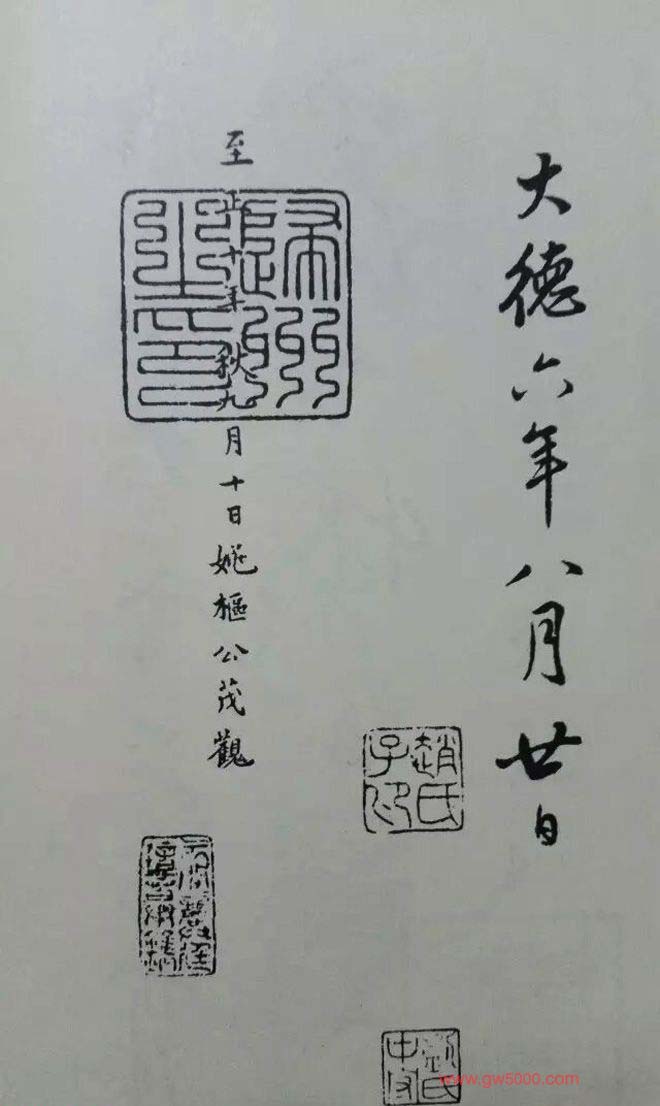 大德六年八月廿日
趙氏子卬
至正十年秋九月十日姚樞公茂觀
www.gw5000.com